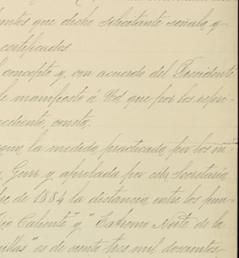 que dicho solicitante señala, y
certificados
concepto y, con acuerdo del Presidente
manifiesto á Vd que por los
consta.
la medida, practicada, por los
y aprobada por esta, Secretaría
de 1884 la distancia entre los
Caliente" y "Extremo Norte de la
" es de ciento tres mil, doscientos